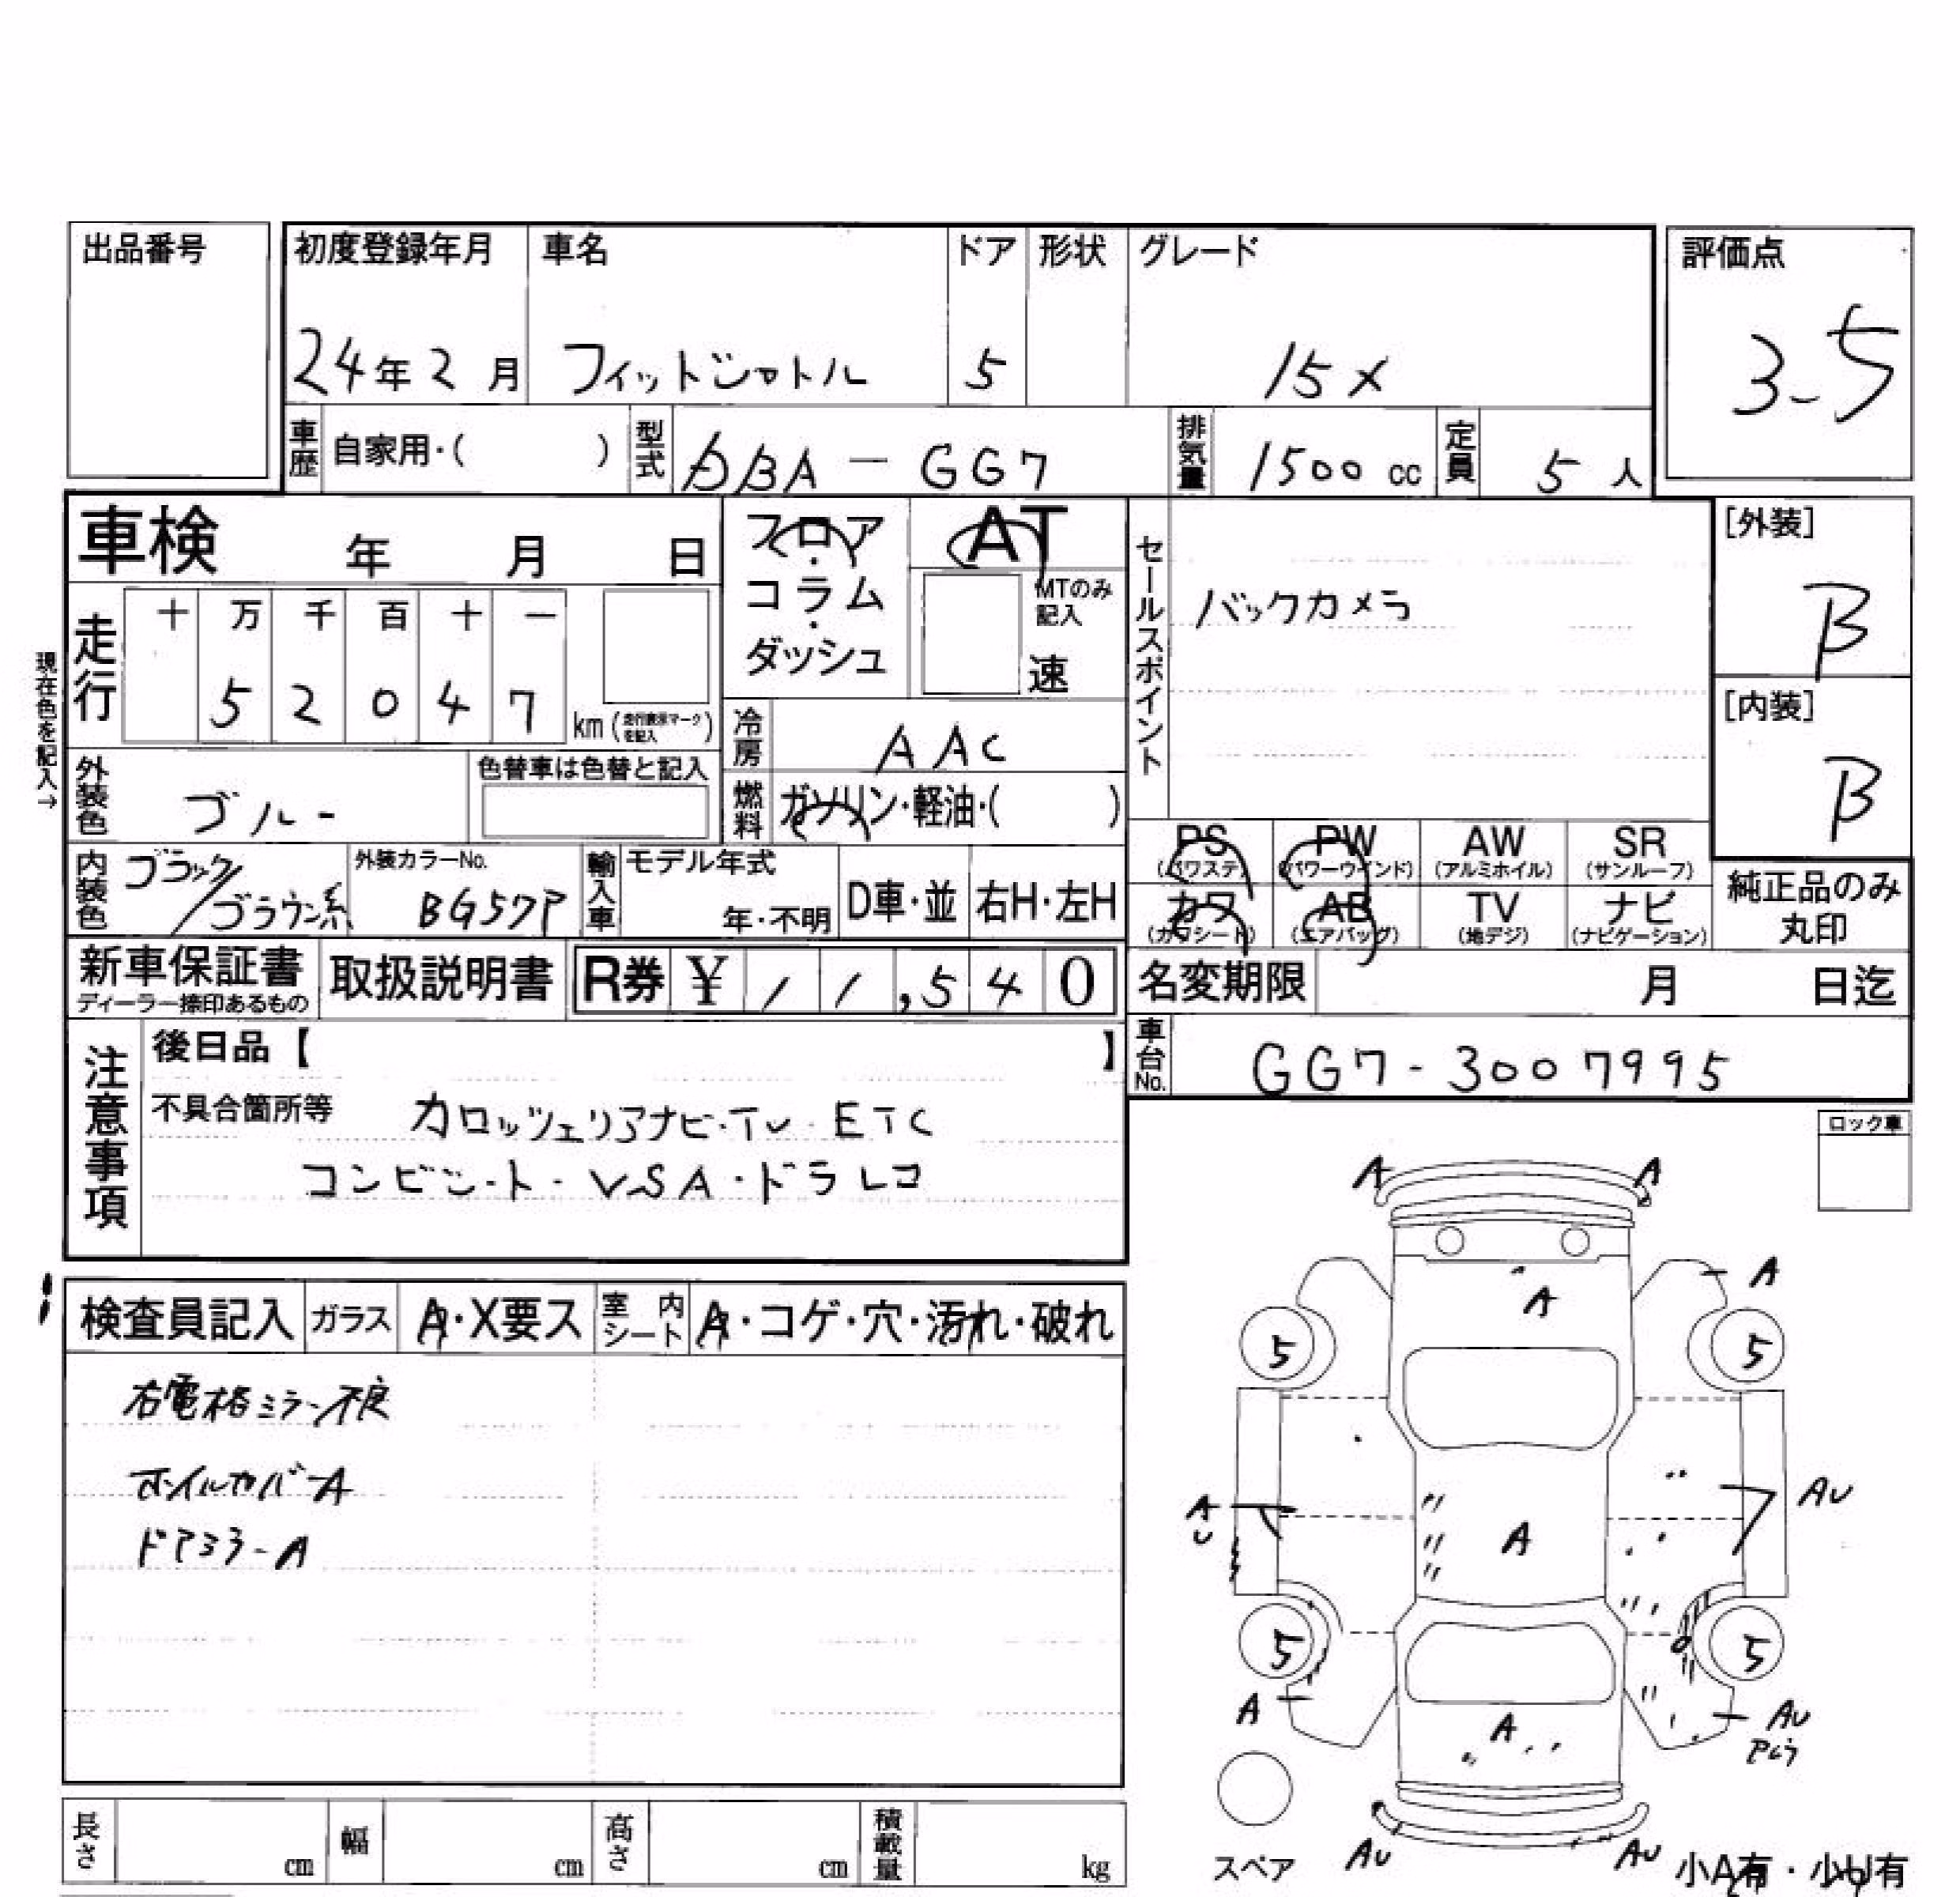 出品番号
初度登録年月 車名 ドア 形状 グレード 評価点
24年2月 フィットシャトル 5 15X 3.5
車歴 自家用・( ) 型式 DBA-GG7 排気量 1500cc 定員 5人
車検 年 月 日
フロア・コラム・ダッシュ
AT
MTのみ記入
速
セールスポイント
バックカメラ
[外装]
B
[内装]
B
現在色を記入→
走行 十 万 千 百 十 一
5 2 0 4 7 km (走行表示マークを記入)
冷房 AAC
外装色 ブルー 色替車は色替と記入
燃料 ガソリン・軽油・( )
内装色 ブラック/ブラウン系 外装カラーNo. BG57P 輸入車 モデル年式 年・不明 D車・並 右H・左H
PS (パワステ) PW (パワーウインド) AW (アルミホイル) SR (サンルーフ)
カワ (カワシート) AB (エアバッグ) TV (地デジ) ナビ (ナビゲーション)
純正品のみ丸印
新車保証書 ディーラー捺印あるもの 取扱説明書 R券 ¥11,540
名変期限 月 日迄
車台No. GG7-3007995
注意事項
後日品【 】
不具合箇所等 カロッツェリアナビ・TV・ETC
コンビニート・VSA・ドラレコ
ロック車
検査員記入 ガラス A・X要ス 室内シート A・コゲ・穴・汚れ・破れ
右電格ミラー不良
ホイルカバーA
ドアミラーA
A A
A A
5 5
A U AU
A
5 5
A A AU
スペア AU AU 小A有・小U有
長さ cm 幅 cm 高さ cm 積載量 kg